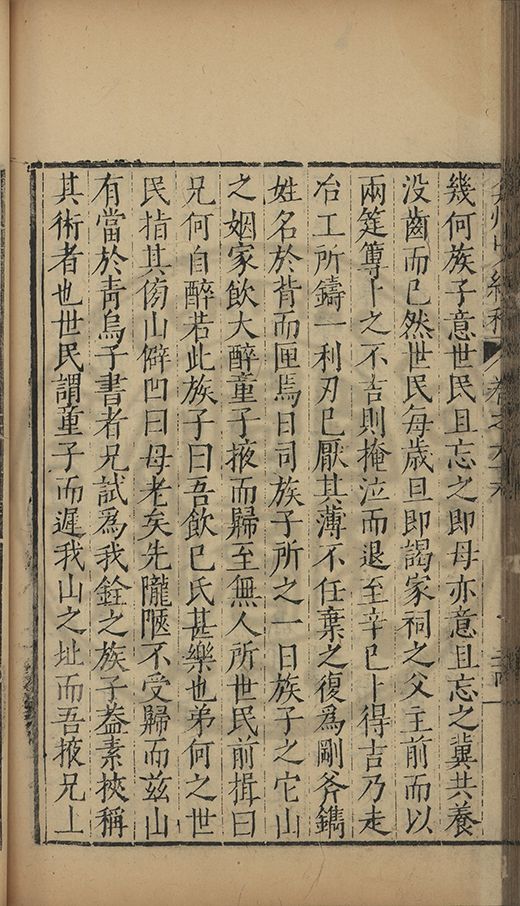 幾何族子意世民且忘之即母亦意且忘之冀共養
没齒而已然世民每歲旦即謁家祠之父主前而以
兩筳篿卜之不吉則掩泣而退至辛巳卜得吉乃走
冶工所鑄一利刃已厭其薄不任棄之復爲剛斧鐫
姓名於背而匣焉日司族子所之一日族子之它山
之姻家飲大醉童子掖而歸至無人所世民前揖曰
兄何自醉若此族子曰吾飲巳氏甚樂也弟何之世
民指其傍山僻凹曰母老矣先隴陿不受歸而兹山
有當於靑烏子書者兄試爲我銓之族子葢素挾稱
其術者也世民謂童子而遲我山之址而吾掖兄上